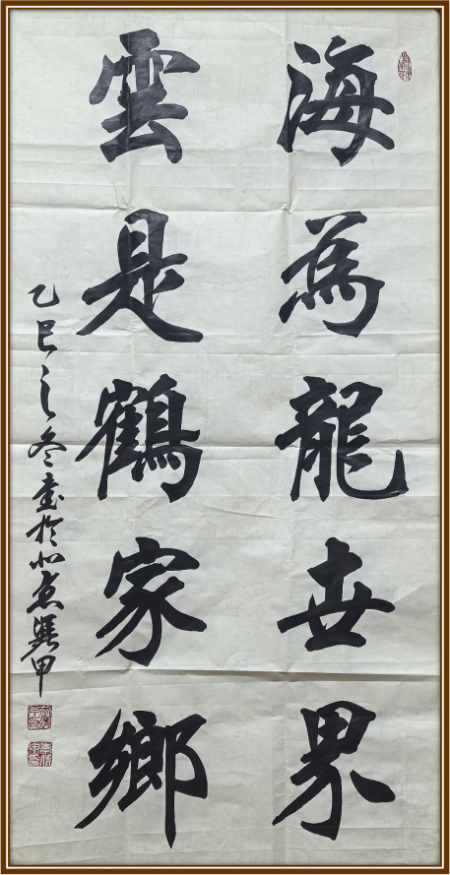 海為龍世界
雲是鶴家鄉
乙巳之冬書於北京選甲